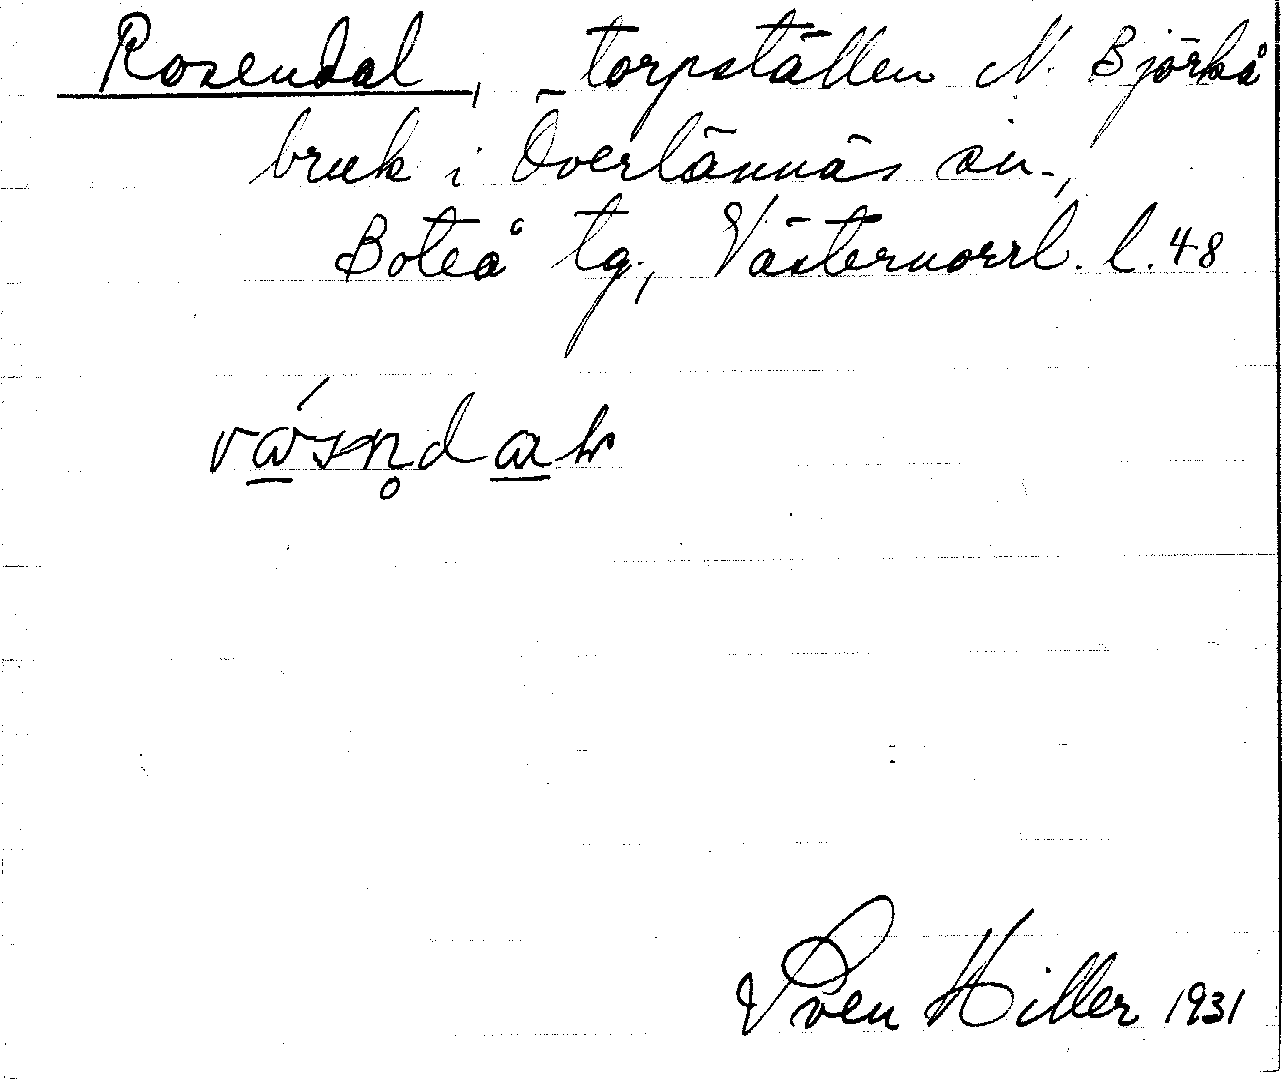 Rosendal, torpställen N. Björkå
bruk i Överlännäs sn.,
Boteå tg, Västernorrl. l. 48
Sven Hiller 1931